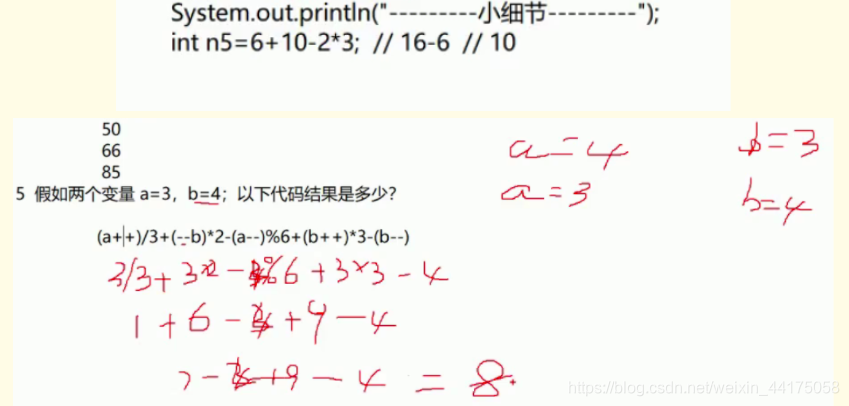 System.out.println("---------小细节---------");
int n5=6+10-2*3;  // 16-6  // 10
50
66
85
a=4
b=3
5  假如两个变量 a=3，b=4；以下代码结果是多少？
a=3
b=4
(a++)/3+(--b)*2-(a--)%6+(b++)*3-(b--)
3/3+3×2- %6+3×3-4
1+6- +9-4
7- +9-4=8
https://blog.csdn.net/weixin_44175058